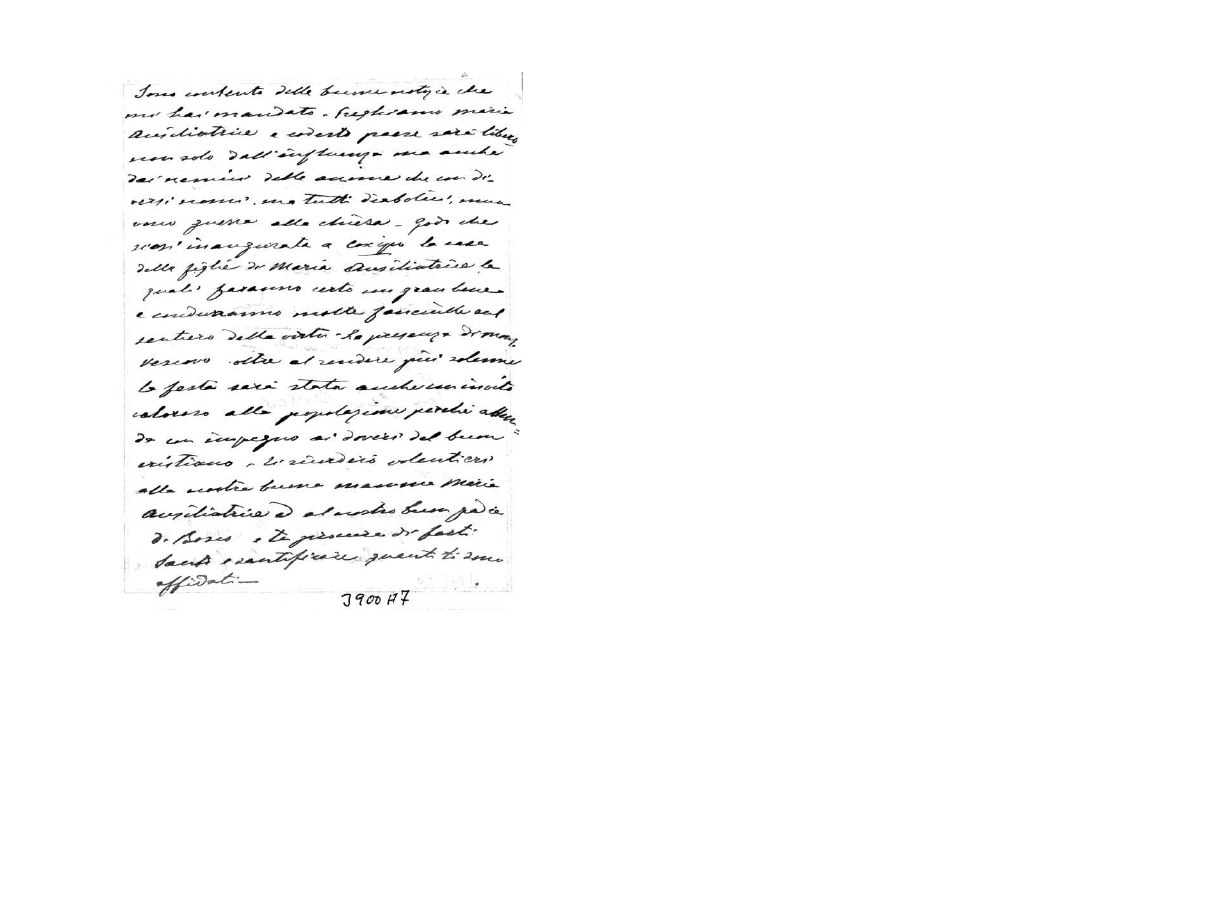 Sono contento delle buone notizie che
mi hai mandato. Preghiamo Maria
Ausiliatrice e codesto paese sarà libero
non solo dall'influenza ma anche
dai nemici delle anime che con di-
versi nomi, ma tutti diabolici, muo
vono guerra alla chiesa - Godo che
siasi inaugurata a Coxipo la casa
delle figlie di Maria Ausiliatrice le
quali faranno certo un gran bene
e condurranno molte fanciulle sul
sentiero della virtù - La presenza di mons.
vescovo oltre al rendere più solenne
la festa sarà stata anche un invito
caloroso alla popolazione perchè atten=
da con impegno ai doveri del buon
cristiano - Ti ricorderò volentieri
alla nostra buona mamma Maria
Ausiliatrice ed al nostro buon padre
D. Bosco e tu procura di farti
santo e santificare quanti ti sono
affidati —
3900 A7